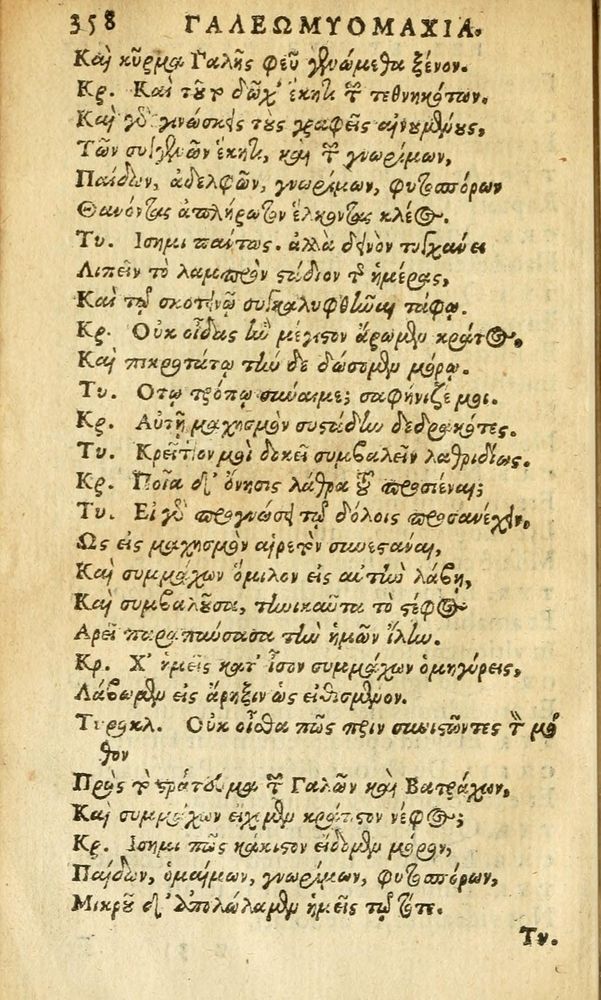 358 ΓΑΛΕΩΜΥΟΜΑΧΙΑ.
Καὶ κῦρμα Γαλῆς φεῦ γενώμεθα ξένον.
Κρ. Καὶ τοῦτο δῶχ' ἕκητι τῶν τεθνηκότων.
Καὶ γὸ γινώσκεις τοὺς γραφεῖς αἰνουμένους,
Τῶν συγγενῶν ἕκητι, καὶ τῶν γνωρίμων,
Παίδων, ἀδελφῶν, γνωρίμων, φυτοσπόρων
Θανόντας ἀπλήρωτον ἕλκοντας κλέος.
Τυ. Ισημι πάντως. ἀλλὰ δεινὸν τυγχάνει
Λιπεῖν τὸ λαμπρὸν στάδιον τῆς ἡμέρας,
Καὶ τῷ σκοτεινῷ συγκαλυφθῆναι τάφῳ.
Κρ. Οὐκ οἶδας ἣν μέγιστον ἄρωμεν κράτος.
Καὶ πικροτάτῳ τήνδε δώσομεν μόρῳ.
Τυ. Οτῳ τρόπῳ σύναιμε; σαφήνιζέ μοι.
Κρ. Αὐτῇ μαχησμὸν συστάδην δεδρακότες.
Τυ. Κρεῖττον μοὶ δοκεῖ συμβαλεῖν λαθριδίως.
Κρ. Ποῖα δ' ὄνησις λάθρα τοῦ προσιέναι;
Τυ. Εἰ γὸ προγνώσει τῷ δόλοις προσανέχειν,
Ως εἰς μαχησμὸν αἱρετὸν συνεστάναι,
Καὶ συμμάχων ὅμιλον εἰς αὐτὴν λάβῃ,
Καὶ συμβαλοῦσα, τηνικαῦτα τὸ στέφος
Αρεῖ παραπαύσασα τὴν ἡμῶν ἴλην.
Κρ. Χ' ἡμεῖς κατ' ἶσον συμμάχων ὁμηγύρεις,
Λάβωμεν εἰς ἄρηξιν ὡς εἰθισμένον.
Τυροκλ. Οὐκ οἶσθα πῶς πρὶν συνιστῶντες τὸν μό
θον
Πρὸς τὸ στράτευμα τῶν Γαλῶν καὶ Βατράχων,
Καὶ συμμάχων εἴχομεν κράτιστον νέφος;
Κρ. Ισημι πῶς κάκιστον εἴδομεν μόρον,
Παίδων, ὁμαίμων, γνωρίμων, φυτοσπόρων,
Μικροῦ δ' ἀπολώλαμεν ἡμεῖς τῷ τότε.
Τυ.